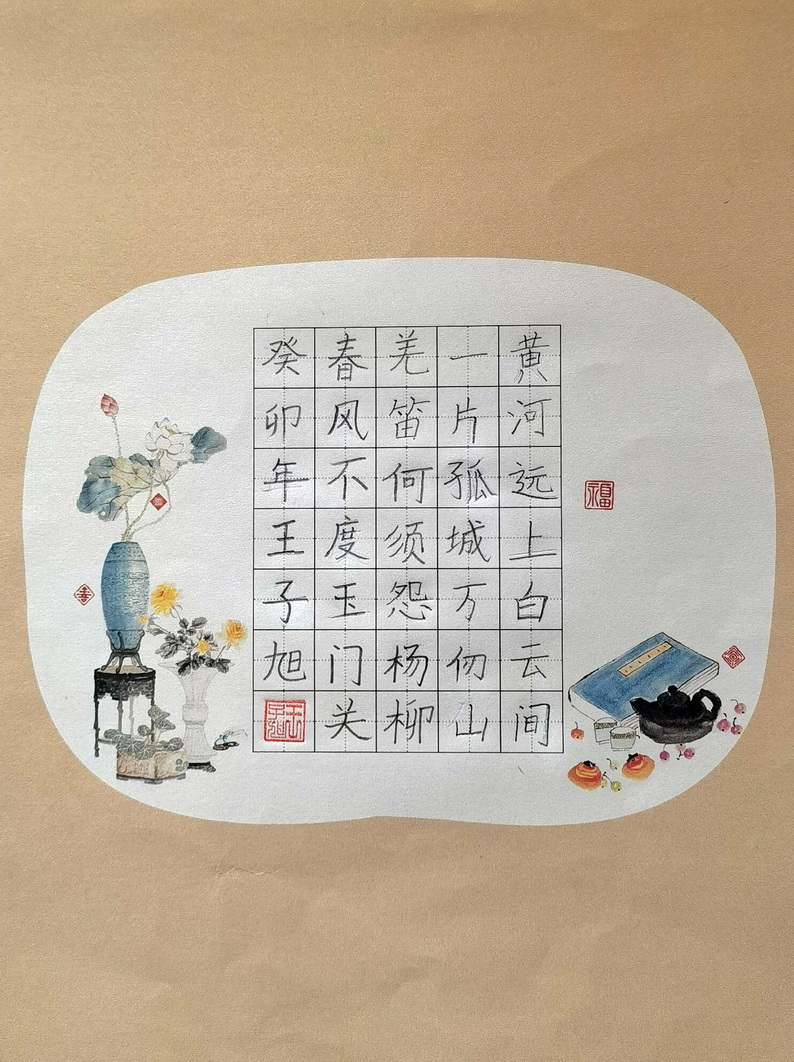 黄河远上白云间
一片孤城万仞山
羌笛何须怨杨柳
春风不度玉门关
癸卯年王子旭
福